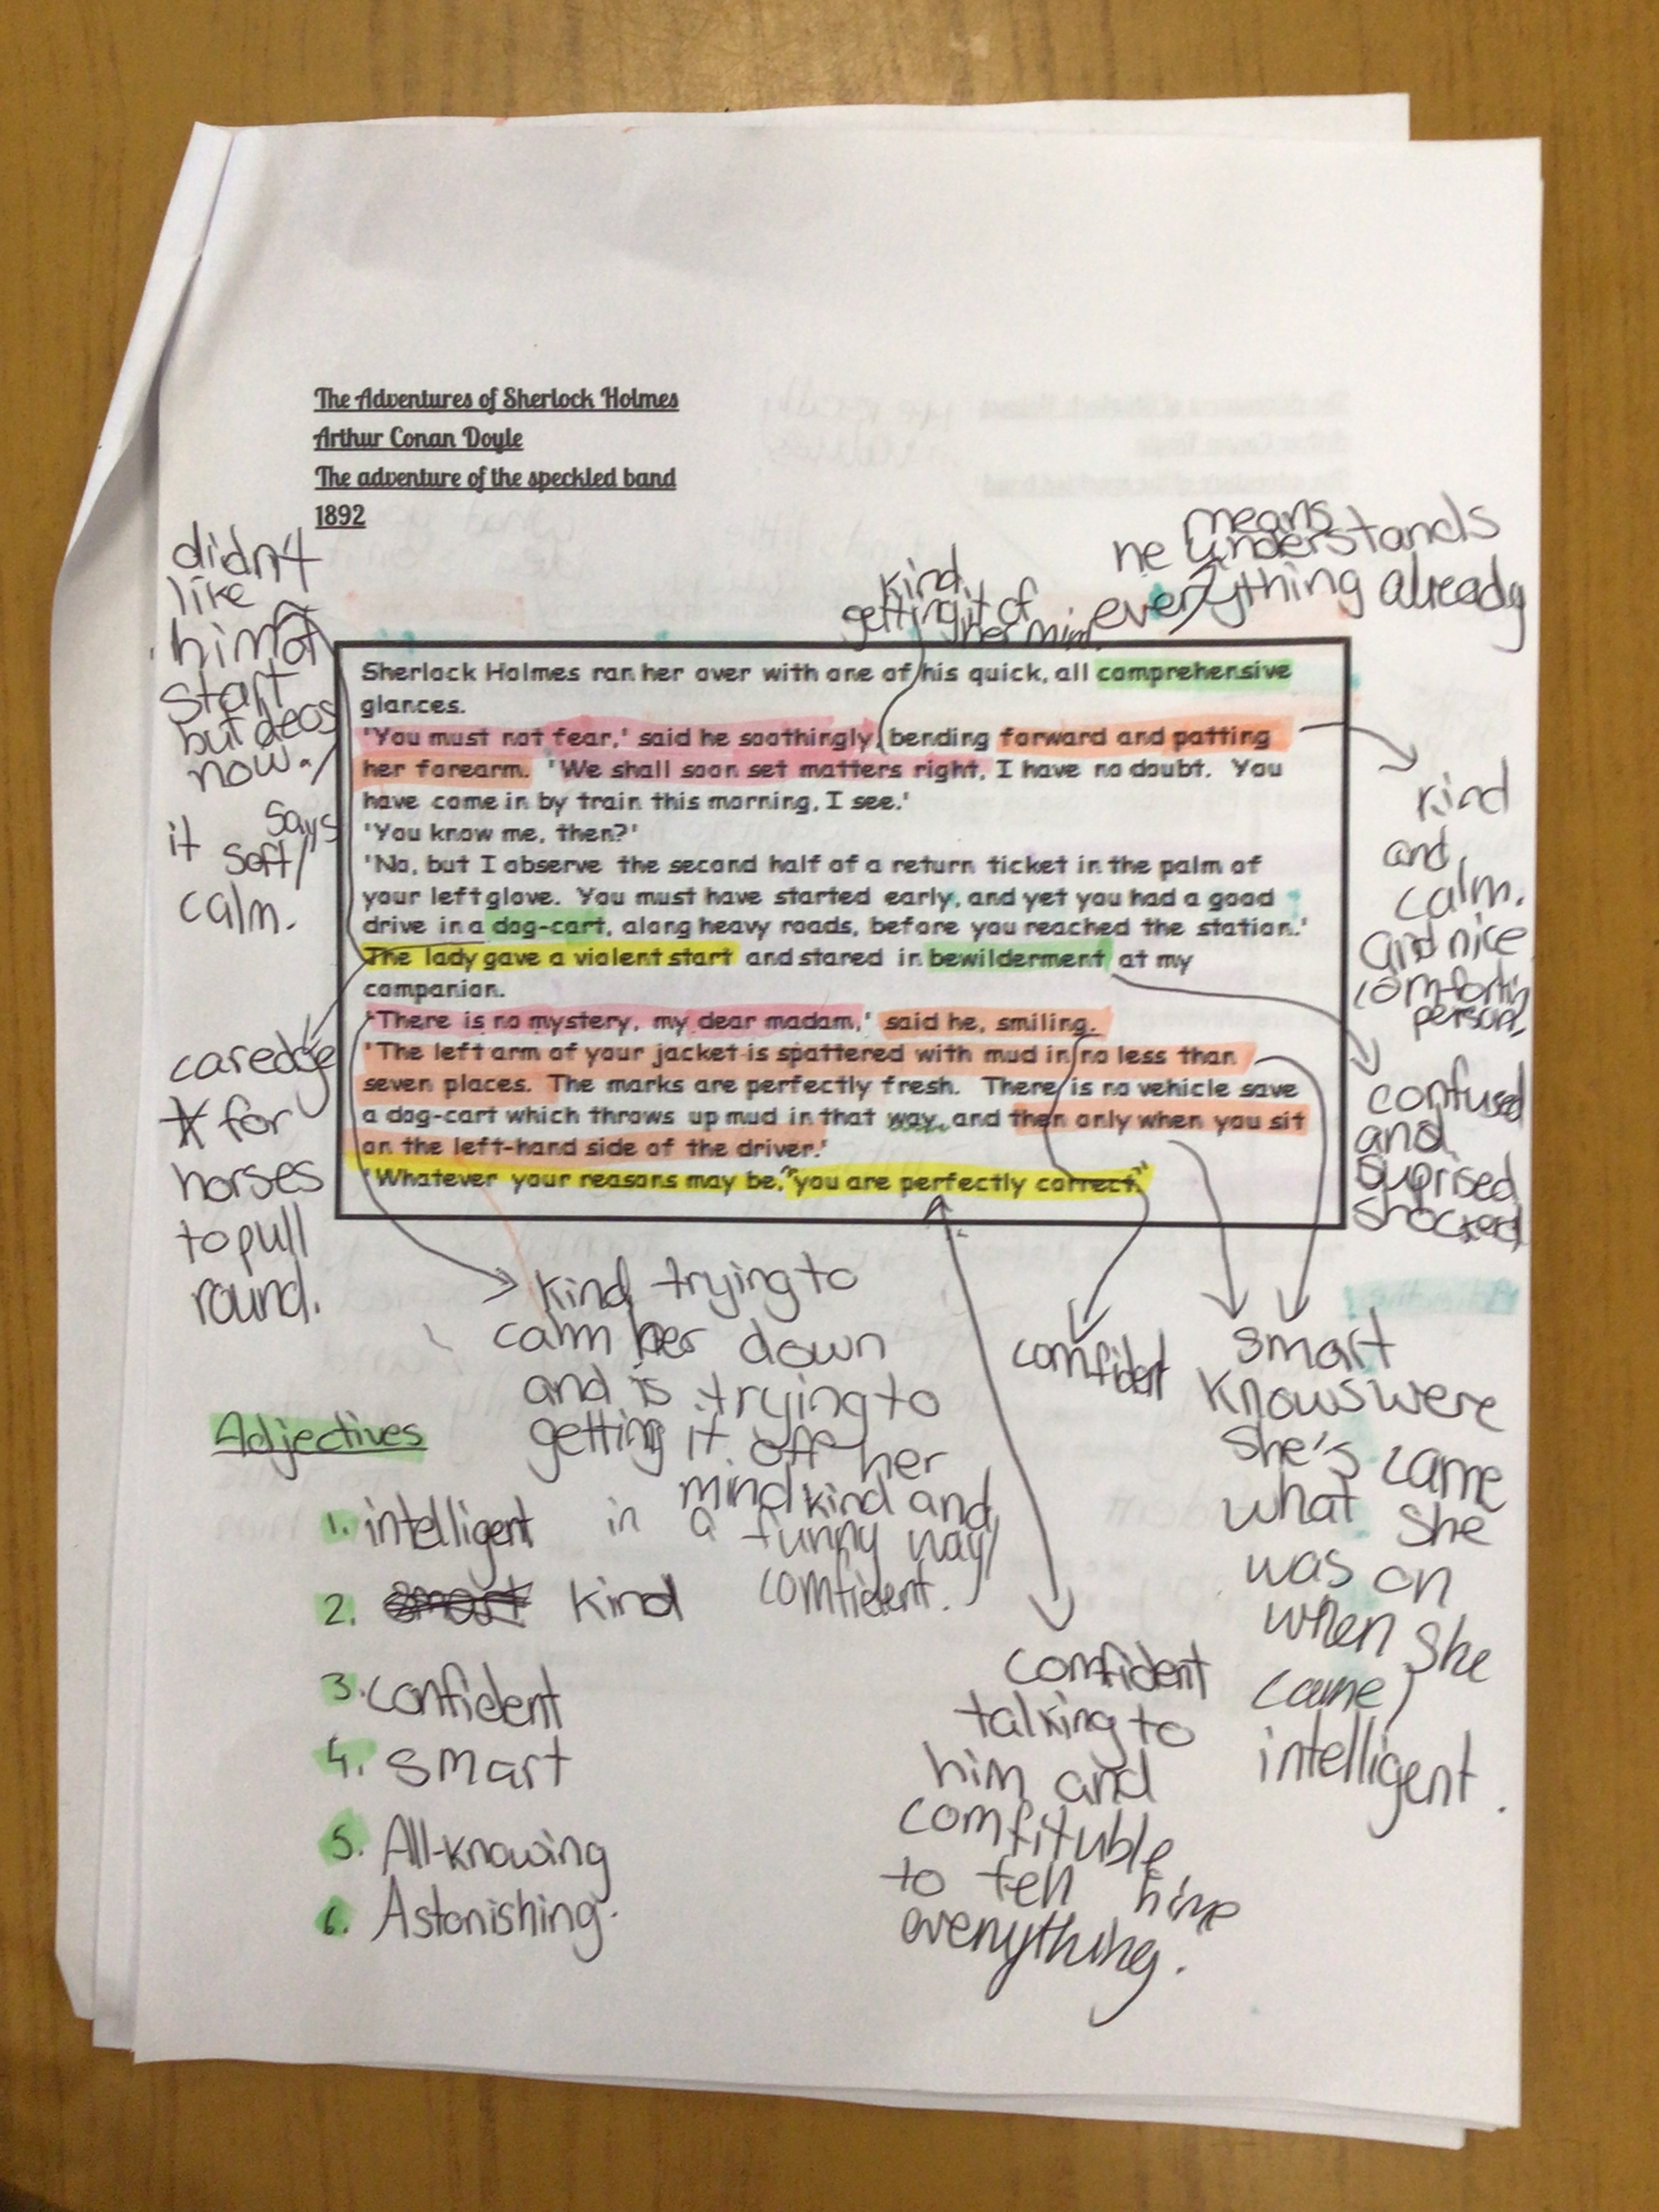 The Adventures of Sherlock Holmes
Arthur Conan Doyle
The adventure of the speckled band
1892
didn't
like
him at
start
but deos
now.
it says
soft/
calm.
caredge
for
horses
to pull
round.
kind,
getting it of
her mind.
means
he understands
everything already
Sherlock Holmes ran her over with one of his quick, all comprehensive
glances.
'You must not fear,' said he soothingly, bending forward and patting
her forearm. 'We shall soon set matters right, I have no doubt. You
have come in by train this morning, I see.'
'You know me, then?'
'No, but I observe the second half of a return ticket in the palm of
your left glove. You must have started early, and yet you had a good
drive in a dog-cart, along heavy roads, before you reached the station.'
The lady gave a violent start and stared in bewilderment at my
companion.
'There is no mystery, my dear madam,' said he, smiling.
'The left arm of your jacket is spattered with mud in no less than
seven places. The marks are perfectly fresh. There is no vehicle save
a dog-cart which throws up mud in that way, and then only when you sit
on the left-hand side of the driver.'
'Whatever your reasons may be, "you are perfectly correct."
kind
and
calm.
and nice
comfortin
person,
confused
and
suprised
shocked
kind, trying to
calm her down
and is trying to
getting it off her
mind kind and
in a funny way/
comfident.
comfident
smart
knows were
she's came
what she
was on
when she
came/
intelligent.
comfident
talking to
him and
comfituble
to tell hime
everything.
Adjectives
1. intelligent
2. smart kind
3. confident
4. smart
5. All-knowing
6. Astonishing.